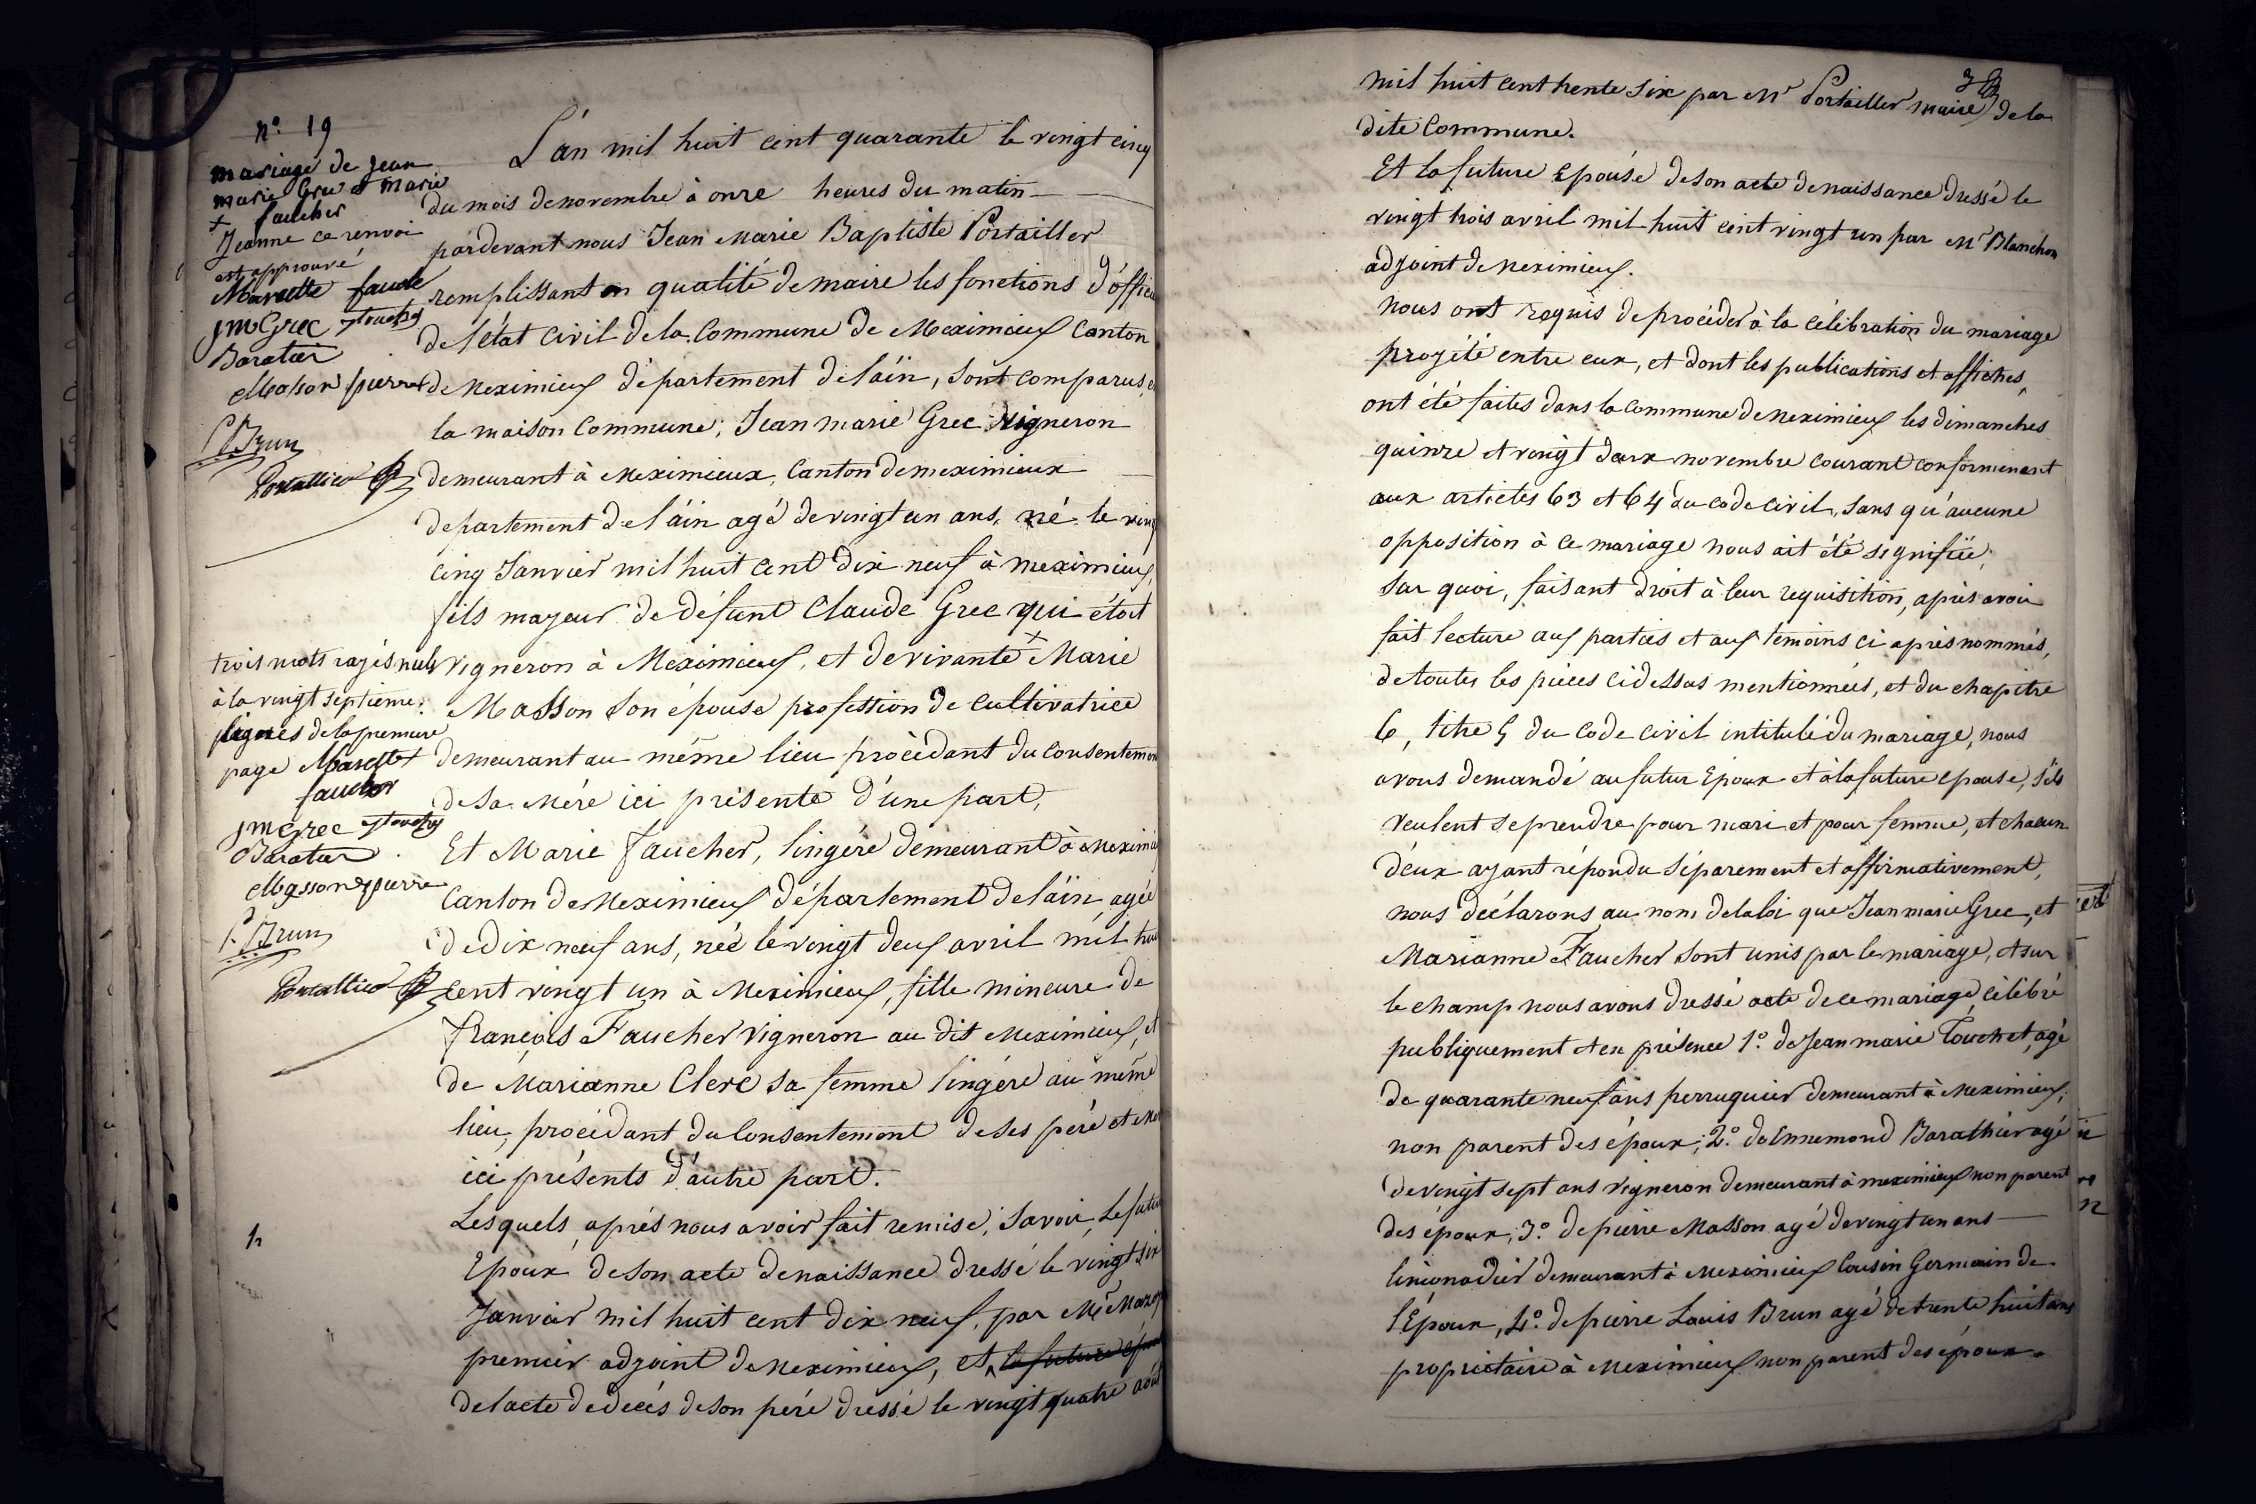 N.º 19
mariage de Jean
marie Grec et Marie
faucher
+ Jeanne ce renvoi
est approuvé
Mariette fauche
jm Grec
Baratier
Masson pierre
Brun
Portallier
trois mots rayés nuls
à la vingt septieme
lignes de la premiere
page
faucher
jm Grec
Baratier
Masson pierre
Brun
Portallier
L'an mil huit cent quarante le vingt cinq
du mois de novembre à onze heures du matin
pardevant nous Jean Marie Baptiste Portailler
remplissant en qualité de maire les fonctions d'officier
de l'état Civil de la Commune de Meximieux Canton
de Meximieux département de l'ain, sont comparus, en
la maison Commune; Jean marie Grec vigneron
demeurant à Meximieux, Canton de meximieux
département de l'ain agé de vingt un ans, né le vingt
cinq Janvier mil huit cent dix neuf à meximieux,
fils mayeur de défunt Claude Grec qui étoit
vigneron à Meximieux, et de vivante + Marie
Masson son épouse profession de Cultivatrice
demeurant au même lieu procédant du consentement
de sa Mére ici présente d'une part,
Et Marie Faucher, lingére demeurant à Meximieux
Canton de Meximieux département de l'ain, agée
de dix neuf ans, née le vingt deux avril mil huit
cent vingt un à Meximieux, fille mineure de
françois Faucher vigneron au dit Meximieux, et
de Marianne Clerc sa femme lingére au même
lieu, procédant du Consentement de ses pére et Mere
ici présents d'autre part.
Lesquels, aprés nous avoir fait remise, Savoir, Le futur
Epoux de son acte de naissance dressé le vingt six
Janvier mil huit cent dix neuf, par Mr
premier adjoint de Meximieux, et la future épouse
de l'acte de decés de son pére dressé le vingt quatre août
mil huit cent trente six par Mr Portailler maire de la
dite Commune.
Et la future Epouse de son acte de naissance dressé le
vingt trois avril mil huit cent vingt un par Mr Blanchon
adjoint de Meximieux.
Nous ont requis de procéder à la célébration du mariage
projété entre eux, et dont les publications et affiches,
ont été faites dans la Commune de Meximieux les dimanches
quinze et vingt deux novembre courant conformement
aux articles 63 et 64 du code Civil, sans qu'aucune
opposition à ce mariage nous ait été signifiée;
Sur quoi, faisant droit à leur requisition, aprés avoir
fait lecture aux parties et aux témoins ci aprés nommés,
de toutes les piéces ci dessus mentionnées, et du chapitre
6, titre 5 du Code civil intitulé du mariage, nous
avons demandé au futur Epoux et à la future epouse, s'ils
veulent se prendre pour mari et pour femme, et chacun
d'eux ayant répondu séparement et affirmativement,
nous déclarons au nom de la loi que Jean marie Grec, et
Marianne Faucher sont unis par le mariage, et sur
le champ nous avons dressé acte de ce mariage célébré
publiquement et en présence 1.º de Jean marie Touchet, agé
de quarante neuf ans perruquier demeurant à Meximieux,
non parent des époux, 2.º de Ennemond Barathier agé
de vingt sept ans vigneron demeurant à meximieux non parent
des époux, 3.º de pierre Masson agé de vingt un ans
limonadier demeurant à Meximieux Cousin Germain de
l'Epoux, 4.º de pierre Louis Brun agé de trente huit ans
propriétaire à Meximieux non parent des époux.